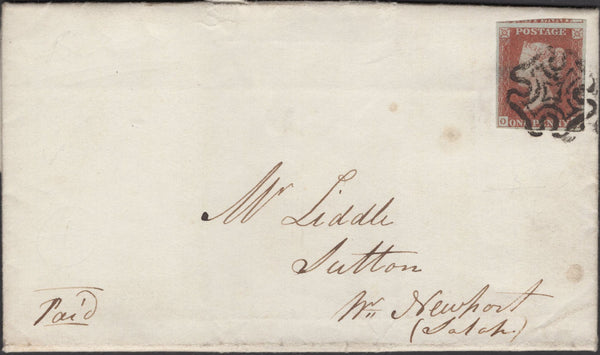 POSTAGE
ONE PENNY
Mr Liddle
Sutton
Nr. Newport
(Salop.)
Paid